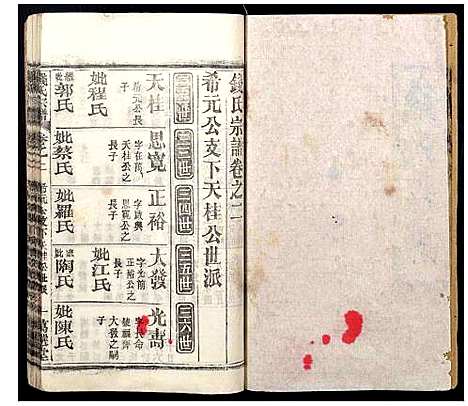 錢氏宗譜卷之二
希元公支下天桂公世派
三二世
三三世
三四世
三五世
三六世
天桂
希元公長子
妣程氏
繼郭氏
思寬
字在茲
天桂公之長子
妣蔡氏
正裕
字啟興
思寬公之長子
妣羅氏
大發
字光前
正裕公之長子
妣江氏
陶氏
光壽
字長命
號福齊
大發之嗣
妣陳氏